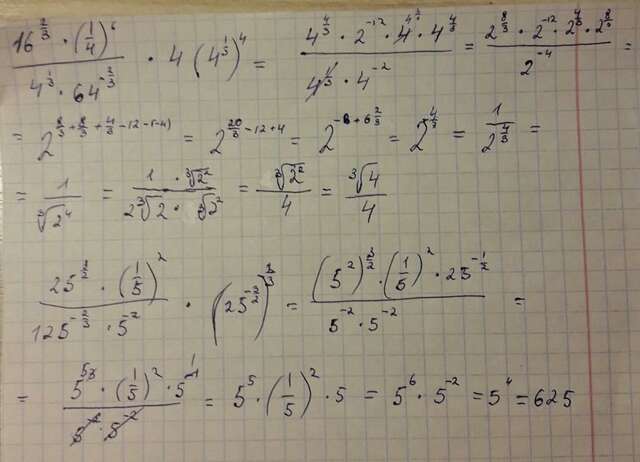 16^(2/3) · (1/4)^6 / (4^(1/3) · 64^(-2/3)) · 4 (4^(1/3))^4 = 4^(4/3) · 2^(-12) · 4^(1/3) · 4^(4/3) / (4^(1/3) · 4^(-2)) = 2^(8/3) · 2^(-12) · 2^(4/3) · 2^(8/3) / 2^(-4) =
= 2^(8/3 + 8/3 + 4/3 - 12 - (-4)) = 2^(20/3 - 12 + 4) = 2^(-8 + 6 2/3) = 2^(4/3) = 1 / 2^(4/3) =
= 1 / ∛2^4 = 1 · ∛2^2 / (2∛2 · ∛2^2) = ∛2^2 / 4 = ∛4 / 4
25^(3/2) · (1/5)^2 / (125^(-2/3) · 5^(-2)) · = (5^2)^(3/2) · (1/5)^2 · 25^(-1/2) / (5^(-2) · 5^(-2)) =
= = 5^5 · (1/5)^2 · 5 = 5^6 · 5^(-2) = 5^4 = 625